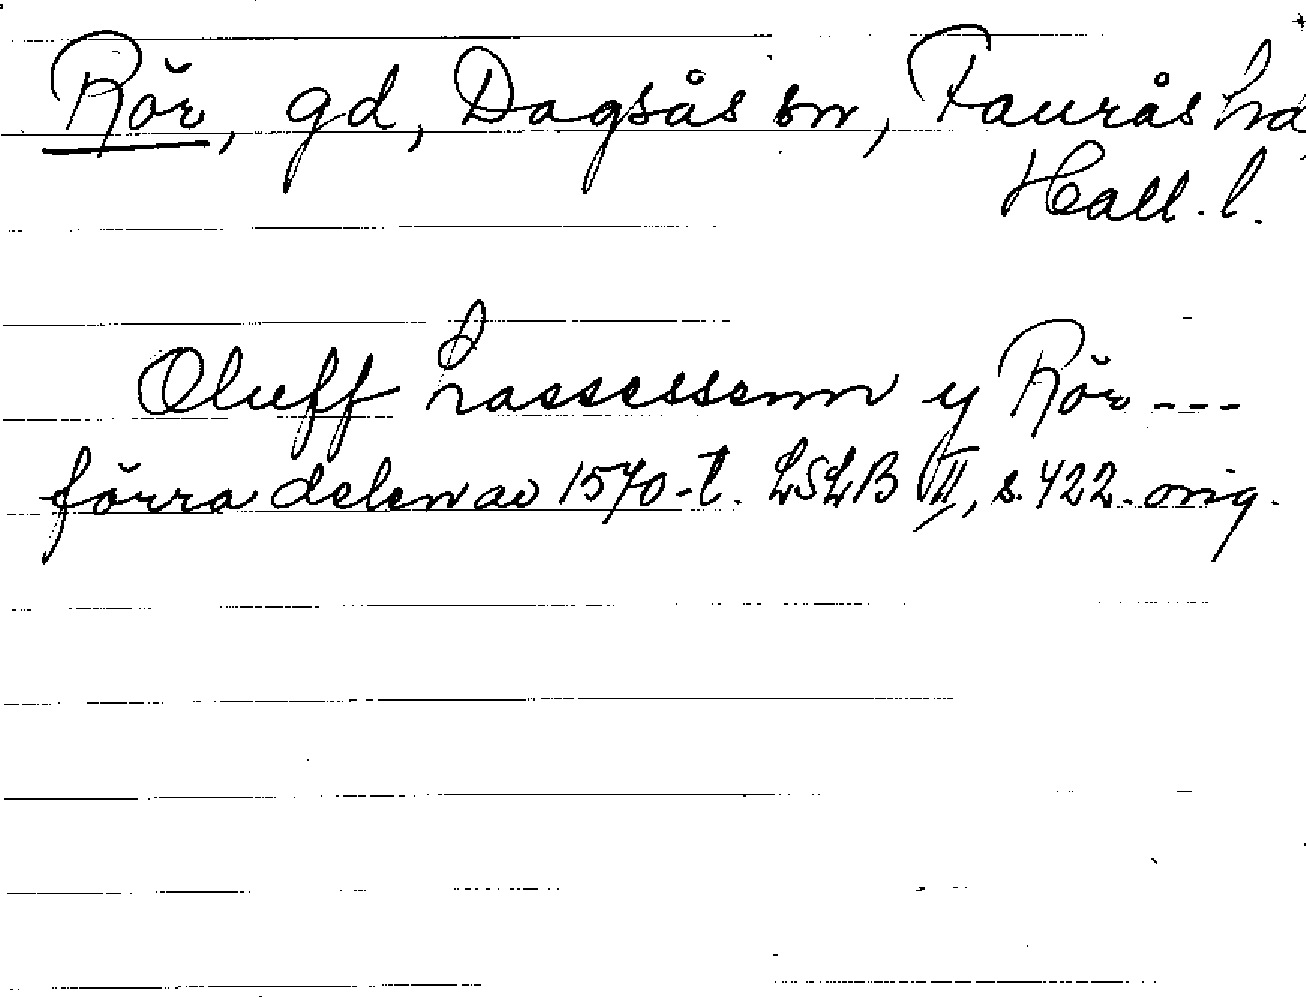 Rör, gd, Dagsås sn, Faurås hd
Hall. l.
Oluff Lassessenn y Rör ---
förra delen av 1570-t. LSLB VII, s. 422. orig.